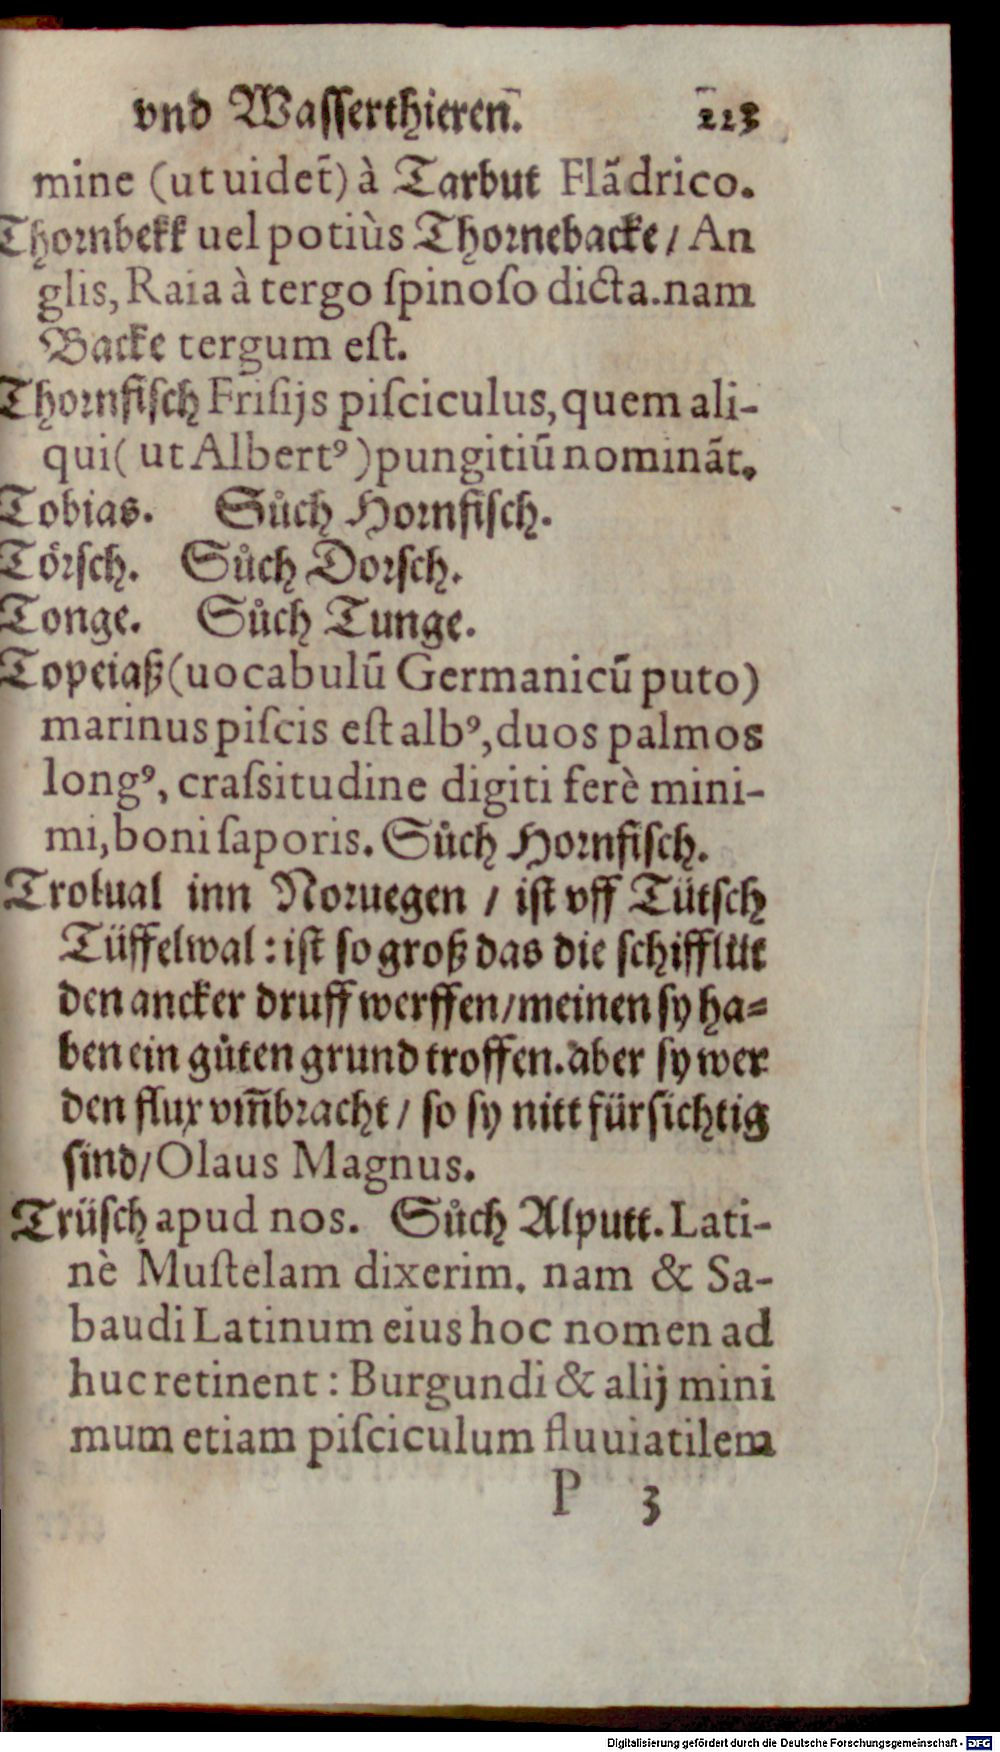 vnd Wasserthieren. 223
mine (ut uidet̃) à Tarbut Flãdrico.
Thornbekk uel potiùs Thornebacke / An
glis, Raia à tergo ſpinoſo dicta. nam
Backe tergum eſt.
Thornfiſch Friſijs piſciculus, quem ali-
qui ( ut Albertꝰ ) pungitiũ nominãt.
Tobias. Sůch Hornfiſch.
Törſch. Sůch Dorſch.
Tonge. Sůch Tunge.
Topeiaß (uocabulũ Germanicũ puto)
marinus piſcis eſt albꝰ, duos palmos
longꝰ, craſsitudine digiti ferè mini-
mi, boni ſaporis. Sůch Hornfiſch.
Trolual inn Noruegen / iſt vff Tütſch
Tüffelwal : iſt ſo groß das die ſchifflüt
den ancker druff werffen / meinen ſy ha-
ben ein gůten grund troffen. aber ſy wer
den flux vm̃bracht / ſo ſy nitt fürſichtig
ſind / Olaus Magnus.
Trüſch apud nos. Sůch Alputt. Lati-
nè Muſtelam dixerim. nam & Sa-
baudi Latinum eius hoc nomen ad
huc retinent : Burgundi & alij mini
mum etiam piſciculum fluuiatilem
P 3
Digitalisierung gefördert durch die Deutsche Forschungsgemeinschaft - DFG